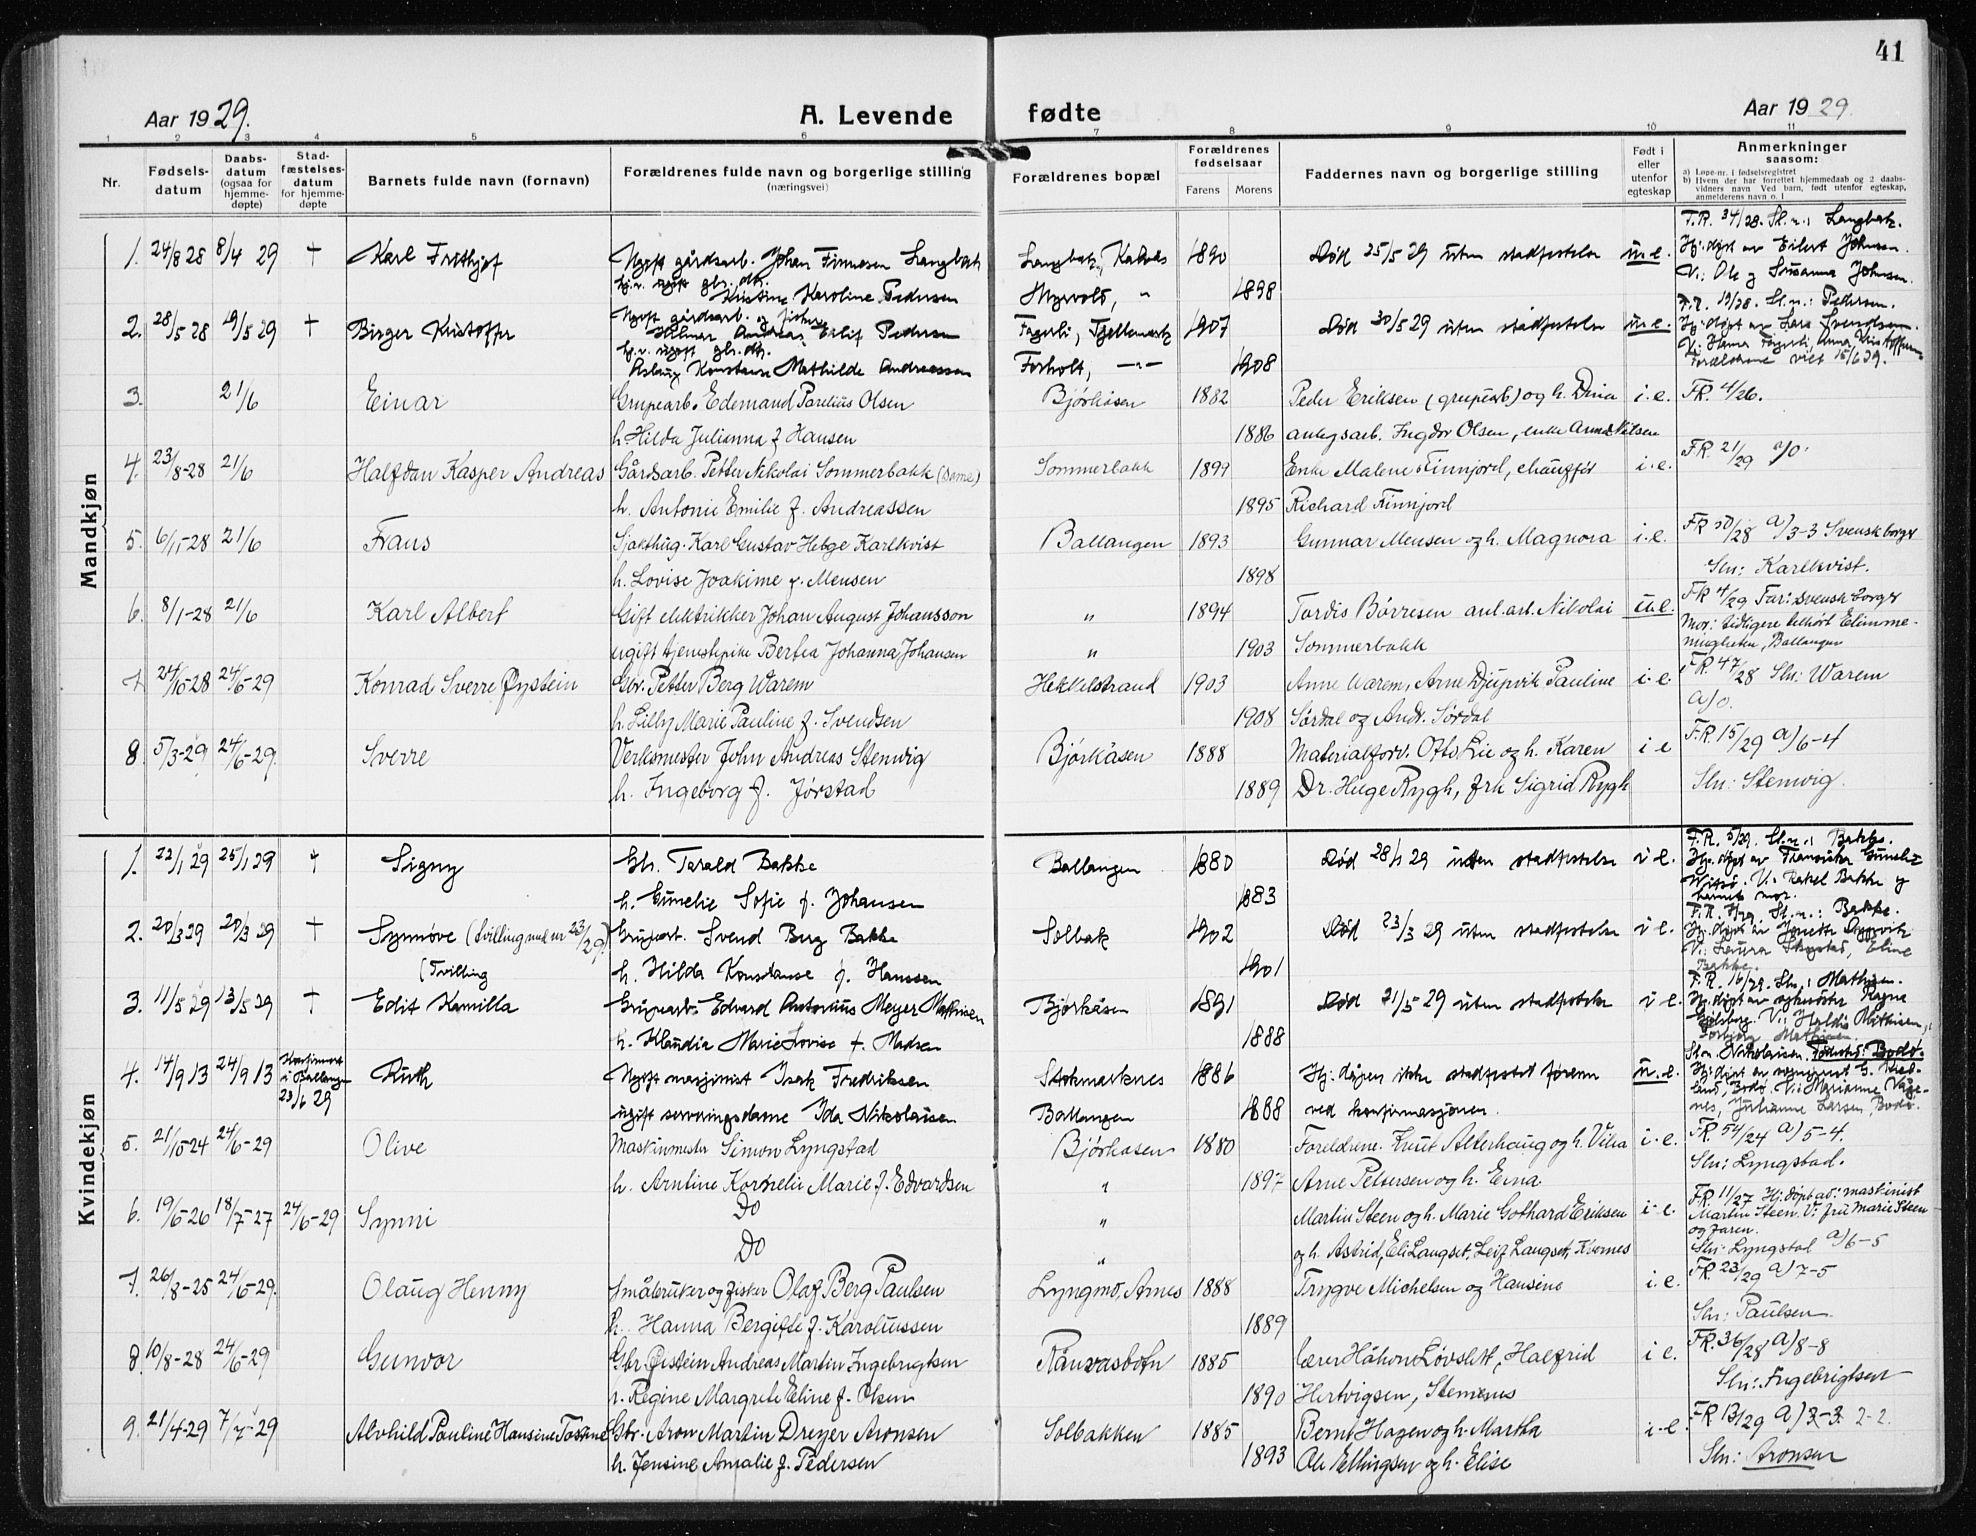 41
Aar 1929.
A. Levende fødte
Aar 1929.
1 2 3 4 5 6 7 8 9 10 11
Nr.
Fødselsdatum
Daabsdatum (ogsaa for hjemmedøpte)
Stadfæstelsesdatum for hjemmedøpte
Barnets fulde navn (fornavn)
Forældrenes fulde navn og borgerlige stilling
(næringsvei)
Forældrenes bopæl
Forældrenes fødselsaar
Farens Morens
Faddernes navn og borgerlige stilling
Født i eller utenfor egteskap
Anmerkninger
saasom:
a) Løpe-nr. i fødselsregistret
b) Hvem der har forrettet hjemmedaab og 2 daabsvidners navn Ved barn, født utenfor egteskap, anmelderens navn o. l
Mandkjøn
F.R. 34/28. Sl.n.: Langbak.
1. 24/8 28 8/4 29 + Karl Frithjof Ugift gårdsarb. Johan Finnesen Langbak Langbak, 1890 Død 25/5 29 uten stadfestelse u.e. Hj.døpt av Eilert Johnsen.
Kristine Karoline Pedersen Myrvold, " 1898 V.: Ole og Susanna Johnsen.
F.R. 19/28. Sl.n.: Pedersen.
2. 28/5 28 19/5 29 + Birger Kristoffer Ugift gårdsarb. og fisker Hilmar Andreas Pedersen Fagerli, 1907 Død 30/5 29 uten stadfestelse u.e. Hj.døpt av Lars Svendsen.
Aslaug Konstanse Mathilde Andreassen Forholt, -"- 1908 Forældrene viet 15/6 29.
3. 21/6 Einar Grupearb. Edemand Parelius Olsen Bjørkåsen 1882 Peder Eriksen (grupearb) og h. Dina i.e. FR. 4/26.
h. Hilda Julianna f Hansen 1886 anlegsarb. Ingdor Olsen, enke Anna Nilsen
4. 23/8-28 21/6 Halfdan Kasper Andreas Gårdsarb. Petter Nikolai Sommerbakk Sommerbakk 1899 Enke Malene Finnjord, chauffør i.e. FR. 21/29 a/0.
h. Antonie Emilie f. Andreassen 1895 Richard Finnjord
5. 6/11-28 21/6 Frans Karl Gustav Helge Karlkvist Ballangen 1893 Gunnar Mensen og h. Magnora i.e. FR 50/28 a) 3-3 Svensk borger
h. Lovise Joakime f. Mensen 1898 Sln: Karlkvist.
6. 8/1-28 21/6 Karl Albert Gift elektrikker Johan August Johansson " 1894 Tordis Børresen anl.arb. Nikolai u.e. FR 4/29 Far: svensk borger
ugift tjenestepike Bertea Johanna Johansen " 1903 Sommerbakk Mor: tidligere tilhørt Elimmenigheten, Ballangen
7. 24/10-28 24/6-29 Konrad Sverre Øystein Gbr. Petter Berg Warem Hekkelstrand 1903 Anne Warem, Arne Djupvik Pauline i.e. FR. 47/28 Sln: Warem
h. Lilly Marie Pauline f. Svendsen 1908 Sørdal og Andr. Sørdal a) 0.
8. 5/3-29 24/6-29. Sverre Verksmester John Andreas Stenvig Bjørkåsen 1888 Materialforv. Otto Lie og h. Karen i e F.R. 15/29 a) 6-4
h. Ingeborg f. Jørstad 1889 Dr. Huge Rygh, frk Sigrid Rygh Sln: Stenvig.
Kvindekjøn
F.R. 5/29. Sl.n.: Bakke.
1. 22/1 29 25/1 29 + Signy Gbr. Tarald Bakke Ballangen 1880 Død 28/1 29 uten stadfestelse i e.
h. Gunelie Sofie f. Johansen 1883 V.: Rakel Bakke og barnets mor.
Sl.n.: Bakke.
2. 20/3 29 20/3 29 + Synnøve (tvilling med nr 23/29.) Grupearb. Svend Berg Bakke Solbak 1902 Død 23/3 29 uten stadfestelse i e.
(Tvilling h. Hilda Konstanse f. Hanssen 1901 V: Laura Skogstad, Eline Bakke.
F.R. 16/29. Sln.: Mathisen.
3. 11/5 29 13/5 29 + Edit Kamilla Gruparb. Edvard Antonius Meyer Mathisen Bjørkåsen 1891 Død 21/5-29 uten stadfestelse i e.
h. Klaudia Marie Lovise f. Madsen 1888
Sln. Nikolaisen. Fødested: Bodø.
4. 14/9 13 24/9 13 Konfirmert i Ballangen 23/6 29 Ruth Ugift maskinist Isak Fredriksen Stokmarknes 1886 Hj: døpen ikke stadfestet førenn u.e.
ugift serveringsdame Ida Nikolaisen Ballangen 1888 ved konfirmasjonen. Julianne Larsen, Bodø.
5. 21/10-24 24/6-29 Olive Maskinmester Simon Lyngstad Bjørkåsen 1880 Foreldrene. Knut Alterhaug og h. Vilia i.e. FR. 54/24 a) 5-4.
h. Arntine Kornelie Marie f. Edvardsen " 1897 Arne Pettersen og h. Erna Sln: Lyngstad.
6. 19/6-26 18/7-27 24/6-29 Synni Do " Martin Steen og h. Marie Gothard Eriksen i.e. FR 11/27 Hj: døpt av: maskinist Martin Steen. V: fru Marie Steen og faren.
Do " og h. Astrid, Eli Langset, Leif Langset, Kjernes Sln: Lyngstad a) 6-5
7. 26/8-25 24/6-29. Olaug Henny Småbruker og fisker Olaf Berg Paulsen Lyngmo, Arnes 1888 Trygve Michelsen og Hansine i.e. FR. 23/29 a) 7-5
h. Hanna Bergitte f. Karoliussen 1889 Sln: Paulsen
8. 10/8-28 24/6-29 Gunvor Gbr. Øistein Andreas Martin Ingebrigtsen Rånvasbotn 1885 Lærer Håkon Løvslett, Halfrid i e. FR. 36/28 a) 8-8
h. Regine Margrete Eline f. Olsen 1890 Hertvigsen, Stemenes Sln: Ingebrigtsen
9. 21/4-29 7/7-29 Alvhild Pauline Hansine Gbr. Aron Martin Dreyer Aronsen Solbakken 1885 Bernt Hagen og h. Martha i-e. FR 13/29 a) 3-3 2-2.
h. Jensine Amalie f. Pedersen 1893 Ole Ellingsen og h. Elise Sln: Aronsen